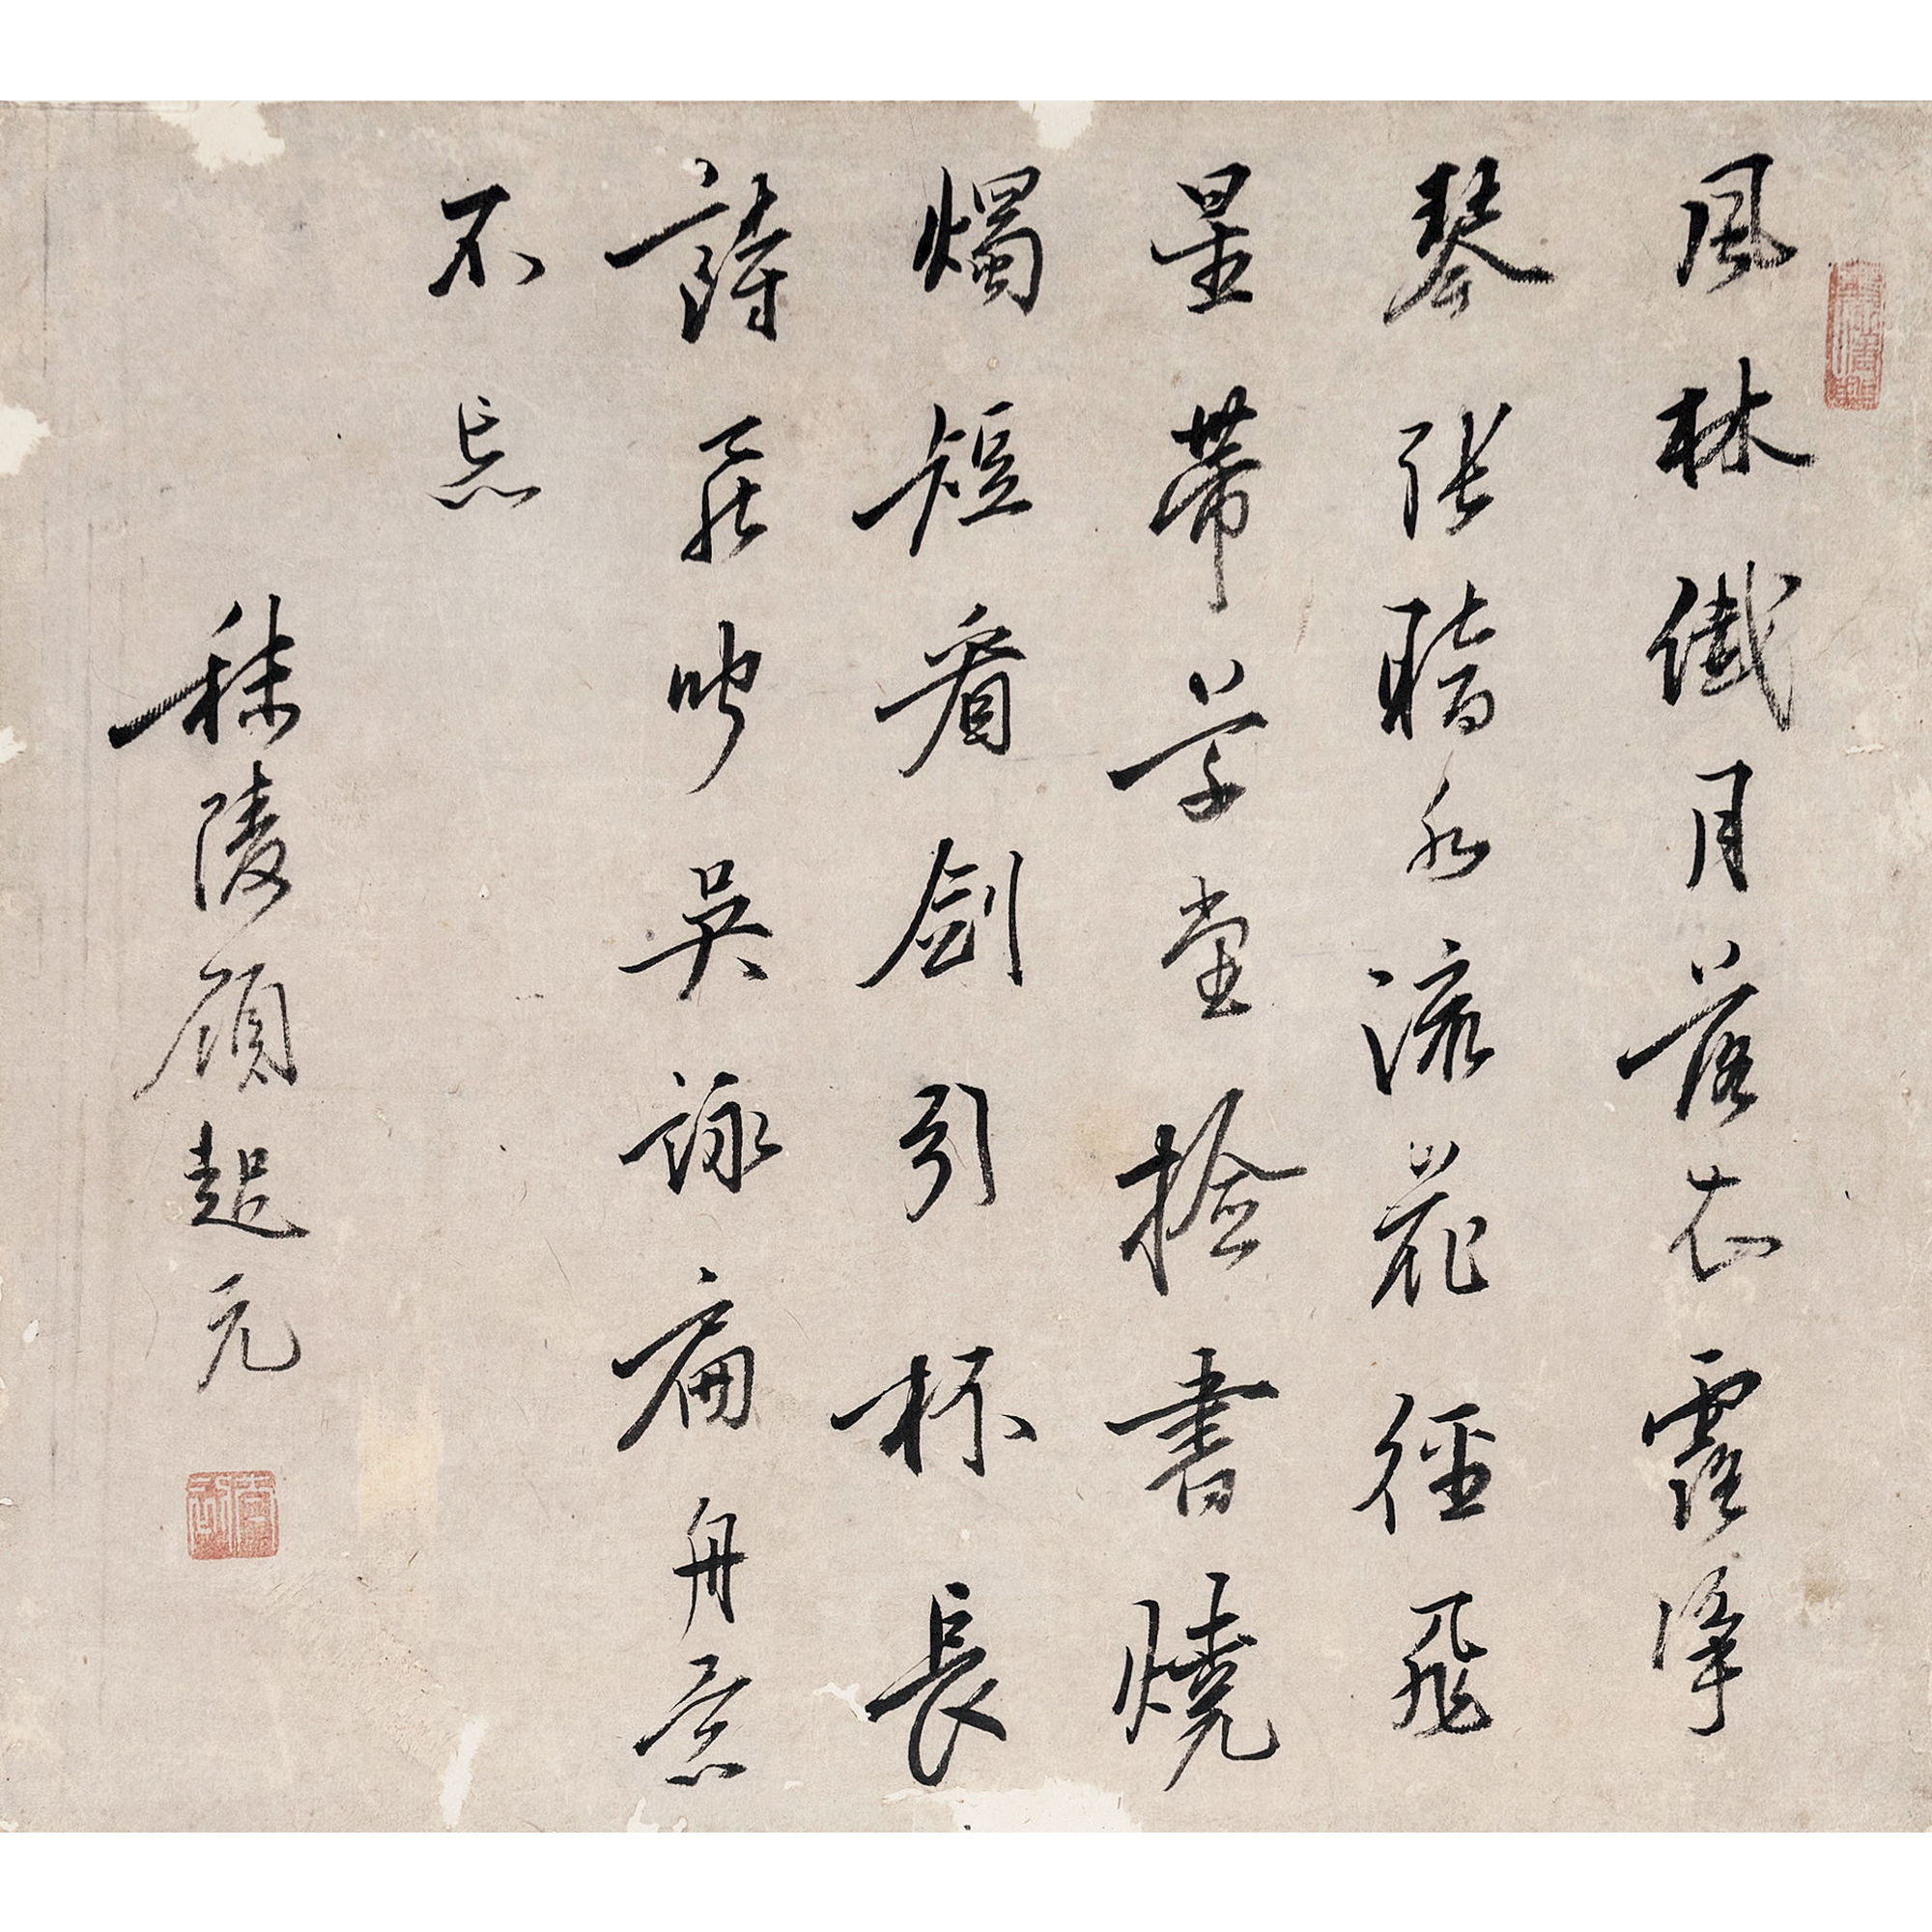 風林纖月落衣露淨
琴張暗水流花徑飛
星帶草堂檢書燒
燭短看劍引杯長
詩罷聞吳詠扁舟意
不忘
秣陵顧起元